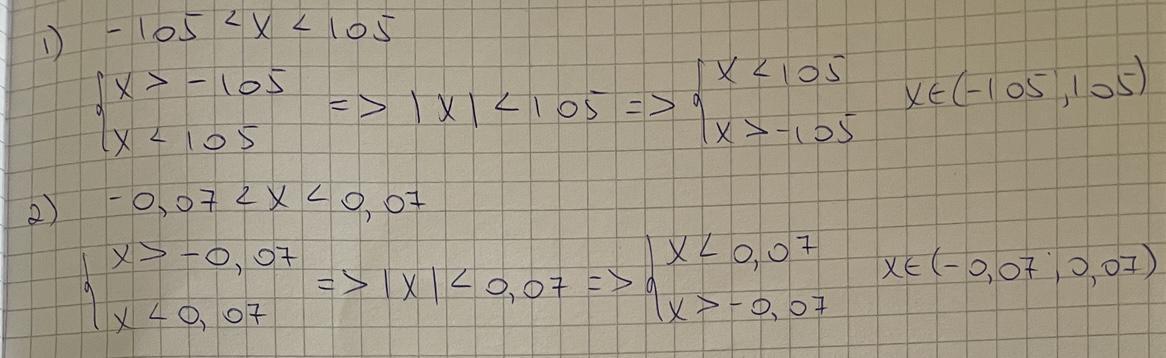 1) -105 < x < 105
{ x > -105
x < 105 => |x| < 105 => { x < 105
x > -105 x∈(-105; 105)
2) -0,07 < x < 0,07
{ x > -0,07
x < 0,07 => |x| < 0,07 => { x < 0,07
x > -0,07 x∈(-0,07; 0,07)